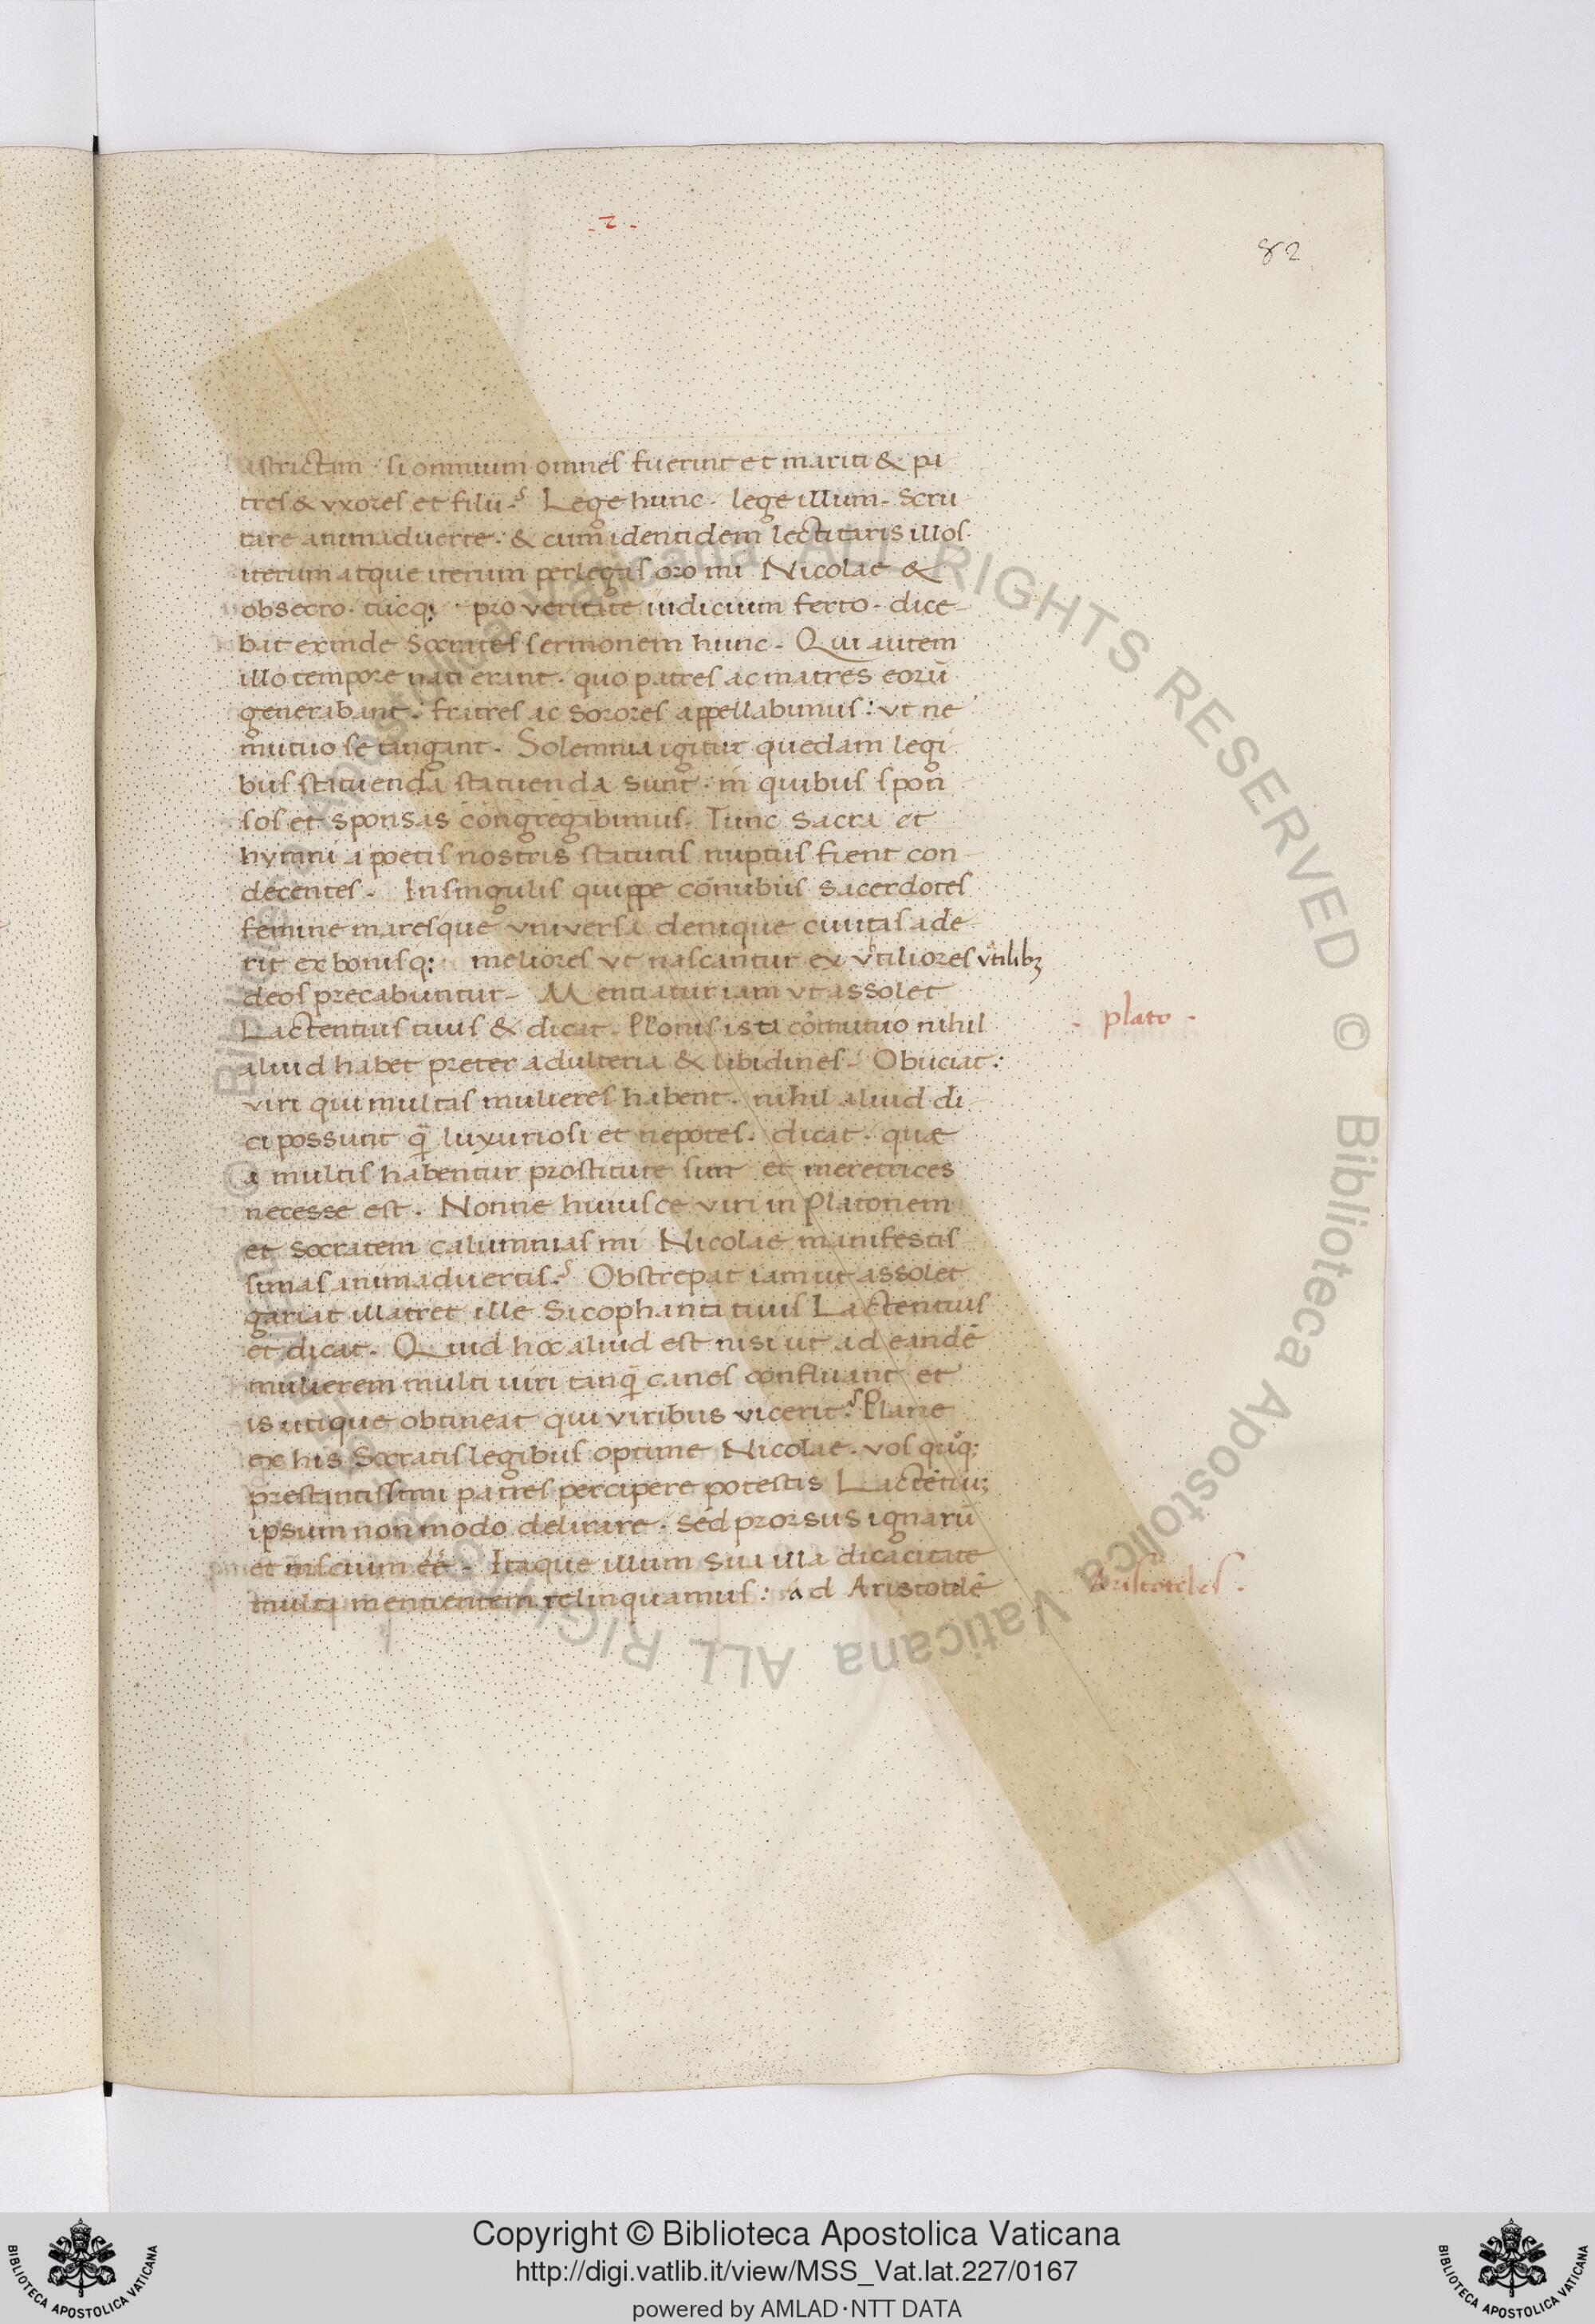 . z .
82
astrictam · si omnium omnes fuerint et mariti & pa
tres & vxores et filii.? Lege hunc . lege illum . Scru
tare animaduerte . & cum identidem lectitaris illos .
iterum atque iterum perlegas oro mi Nicolae &
obsecro . tucq: pro veritate iudicium ferto . dice
bat exinde Socrates sermonem hunc . Qui autem
illo tempore nati erant . quo patres ac matres eorū
generabant . fratres ac sorores appellabimus : vt ne
mutuo se tangant . Solemnia igitur quedam legi
bus statuenda statuenda sunt . in quibus spon
sos et sponsas congregabimus . Tunc sacra et
hymni a poetis nostris statutis nuptiis fient con
decentes . In singulis quippe cōnubiis sacerdotes
femine maresque vniuersa denique ciuitas ade
rit ex bonisq: meliores vt nascantur ex vtiliores vtilibȝ
deos precabuntur . Mentiatur iam vt assolet
Lactentius tuus & dicat . Pl'onis ista cōmunio nihil
. plato .
aliud habet preter adulteria & libidines . Obiiciat :
viri qui multas mulieres habent . nihil aliud di
ci possunt q̄ luxuriosi et nepotes . dicat . quæ
a multis habentur prostitute sint et meretrices
necesse est . Nonne huiusce viri in Platonem
et Socratem calumnias mi Nicolae manifestis
simas animaduertis.? Obstrepat iam ut assolet
gariat illatret ille Sicophanta tuus Lactentius
et dicat . Quid hoc aliud est nisi ut ad eandē
mulierem multi uiri tanq̄ canes confluant et
is utique obtineat qui viribus vicerit.? Plane
ex his Socratis legibus optime Nicolae . vos quoq:
prestantissimi patres percipere potestis Lactētiuȝ
ipsum non modo delirare . sed prorsus ignarū
et inscium eē . Itaque illum sua illa dicacitate
multa mentientem relinquamus : ad Aristotelē
Aristoteles .
Copyright © Biblioteca Apostolica Vaticana
http://digi.vatlib.it/view/MSS_Vat.lat.227/0167
powered by AMLAD·NTT DATA
BIBLIOTECA APOSTOLICA VATICANA
BIBLIOTECA APOSTOLICA VATICANA
© Biblioteca Apostolica Vaticana ALL RIGHTS RESERVED © Biblioteca Apostolica Vaticana ALL RIGHTS RESERVED